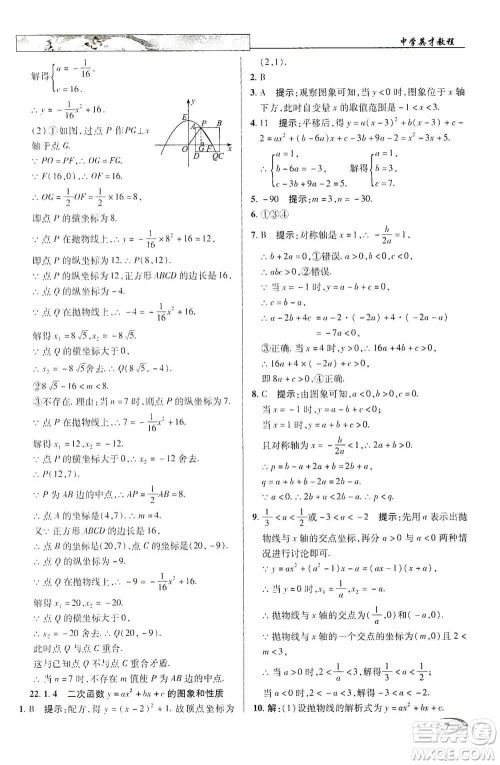 中学英才教程
解得{a=-1/16,
c=16.
∴y=-1/16x²+16.
(2)①如图,过点P作PG⊥x
轴于点G.
∵PO=PF,∴OG=FG.
∵F(16,0),∴OF=16.
∴OG=1/2OF=1/2×16=8.
即点P的横坐标为8.
∵点P在抛物线上,∴y=-1/16×8²+16=12.
即点P的纵坐标为12.
∵点P的纵坐标为12,正方形ABCD的边长是16.
∴点Q的纵坐标为-4.
∵点Q在抛物线上,∴-4=-1/16x²+16.
解得x₁=8√5,x₂=-8√5.
∵点Q的横坐标大于0,∴x₂=-8√5舍去.
∴点Q的横坐标为8√5.
②8√5-16<m<8.
③不存在.理由:当n=7时,则点P的纵坐标为7.
∵点P在抛物线上,∴7=-1/16x²+16.
解得x₁=12,x₂=-12.
∵点P的横坐标大于0,∴x₂=-12舍去.
∴P(12,7).
∵P为AB边的中点,∴AP=1/2AB=8.
∴点A的坐标为(4,7).
又∵正方形ABCD的边长是16,
∴点B的坐标为(20,7),点C的坐标为(20,-9).
∴点Q的纵坐标为-9.
∵点Q在抛物线上,∴-9=-1/16x²+16.
解得x₁=20,x₂=-20.
∵点Q的横坐标大于0,
∴x₂=-20舍去.∴Q(20,-9).
此时点Q与点C重合,这与已知点Q不与点C重合
矛盾.
∴当n=7时,不存在这样的点P为AB的中点.
22.1.4 二次函数y=ax²+bx+c的图象和性质
1. B 提示:配方,得
(2,1).
2. B
3. A 提示:观察图象可知,当y<0时,图象位于x轴
下方,此时自变量x的取值范围是-1<x<3.
4. 11 提示:平移后,得y=a(x-3)²+b(x-3)+
c-2=ax²+(b-6a)x+9a-3b+c-2=x²-3x+5.
∴{a=1,
b-6a=-3,
c-3b+9a-2=5. 解得{a=1,
b=3,
c=7. ∴a+b+c=11.
5. -90 提示:m=3,n=-30.
6. ①③④
7. B 提示:对称轴是x=1,∴-b/2a=1.
∴b+2a=0.①错误.∵a>0,∴b<0.∵c<0,
∴abc>0.②错误.
∵b=-2a,
∴a-2b+4c=a+4a+4c=5a+4c.
∵a-b+c=0,∴c=b-a=-3a.
∴5a+4c=-7a<0.
∴a-2b+4c<0.
③正确.∵当x=4时,y>0,∴16a+4b+c>0.
∵b=-2a,∴16a-8a+c>0.
即8a+c>0.④正确.
8. C 提示:由图象可知a<0,b>0,c=0.
∵当x=-1时,y=a-b+c<0,
当x=1时,y=a+b+c>0.
且对称轴为x=-b/2a>1.∴b+2a>0.
∴p=b-a+b+2a=a+2b.
q=b-a-b-2a=-3a.
∵p-q=4a+2b>0.∴p>q.
9. 1/3<a<1/2或-3<a<-2 提示:先用a表示出抛
物线与x轴的交点,再分a>0与a<0两种
情况进行讨论即可.
∵y=ax²+(a²-1)x-a=(ax-1)(x+a).
∴当y=0时,x₁=1/a,x₂=-a.
∴抛物线与x轴的交点为(1/a,0)和(-a,0).
∵抛物线与x轴的一个交点的坐标为(m,0)且2<
m<3.
∴当a>0时,2<1/a<3,解得1/3<a<1/2;
当a<0时,2<-a<3,解得-3<a<-2.
10. 解:(1)设抛物线的解析式为y=